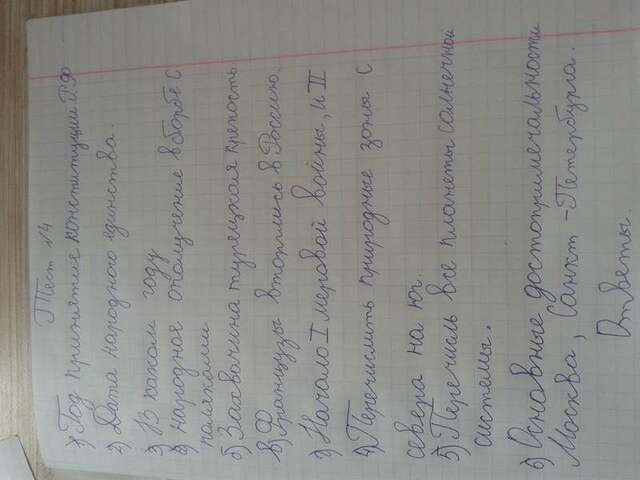 Тест №4
1) Год принятие конституции Р.Ф
2) Дата народного единства.
3) В каком году
а) народное ополчение в борьбе с
поляками
б) Захвачина турецкая крепость
в) Французы вторглись в Россию.
г) Начало I меровой войны, и II
4) Перечислить природные зоны с
севера на юг.
5) Перечисль все планеты солнечной
системы.
6) Основные достопримечальности
Москва, Санкт-Петербурга.
Ответы.